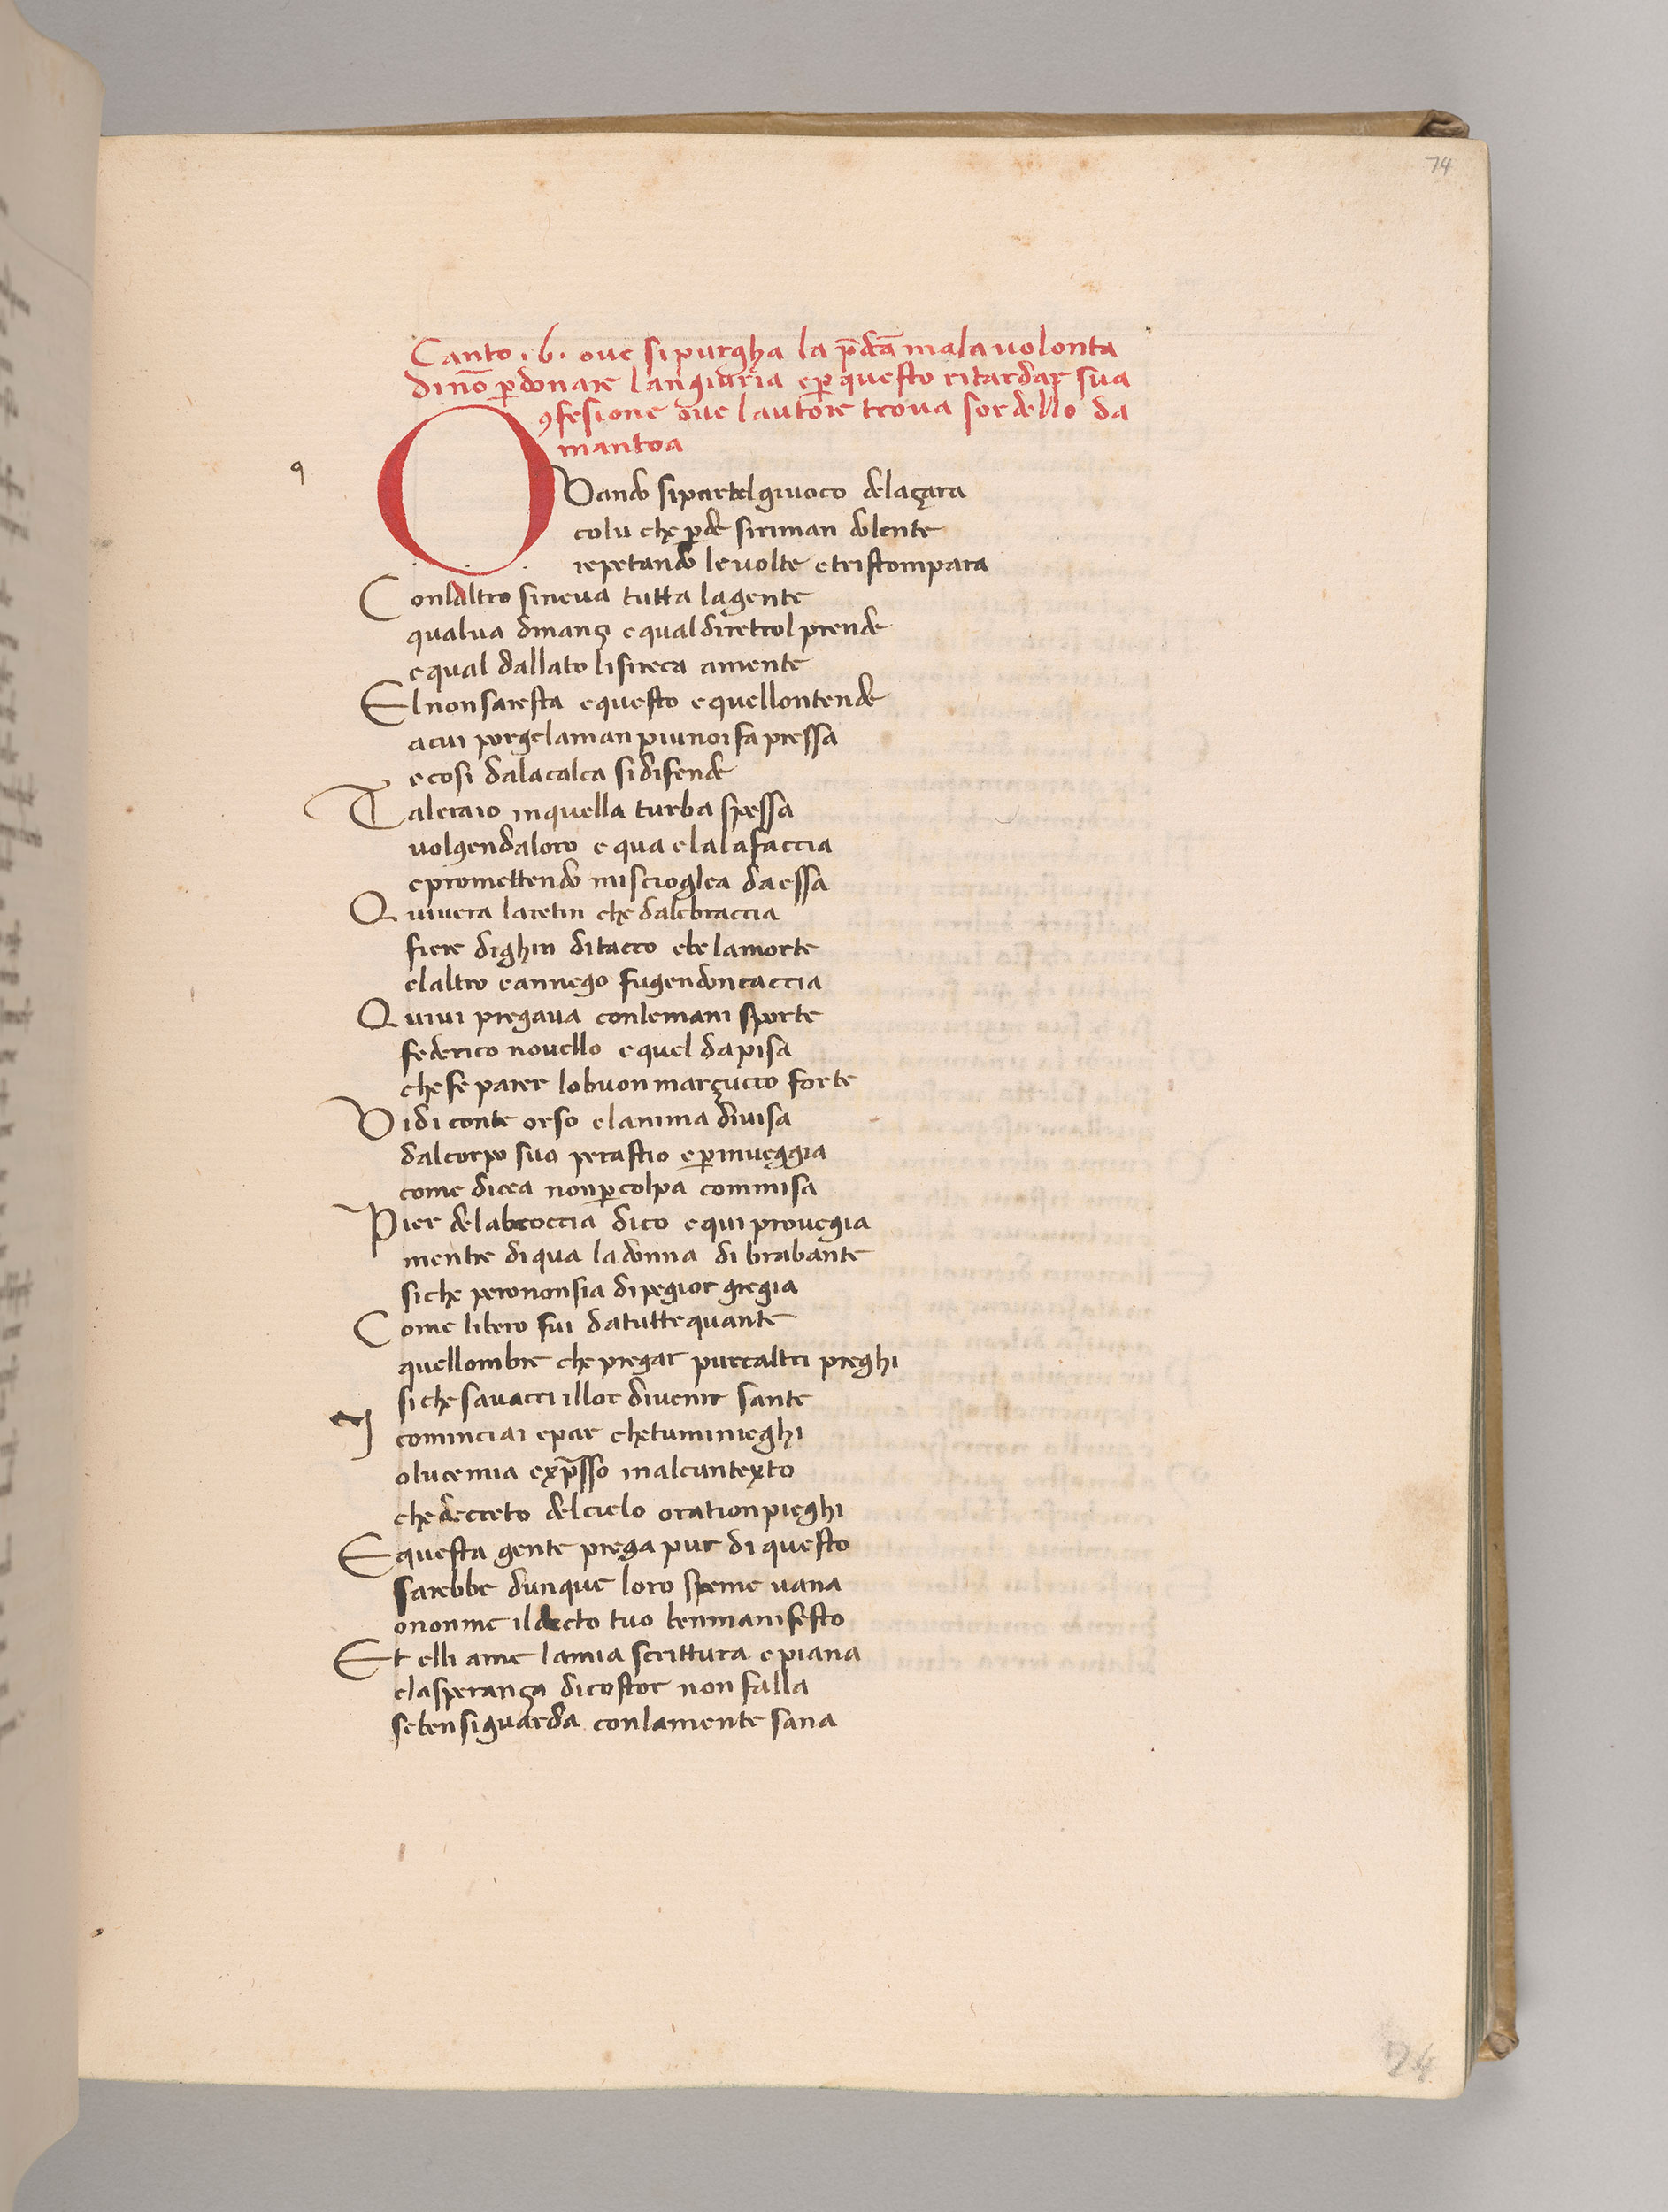 74
Canto .6. oue si purgha la p̄dc̄a mala uolonta
di nō ꝑdonare la ngiuria e ꝑ questo ritardar sua
ꝯfesione oue lautore troua sordello da
mantoa
q
QVando sipartel giuoco delaçara
colu che ꝑde siriman dolente
repetando leuolte e tristompara
Conlaltro sineua tutta lagente
qualua dinançi e qual diretrol prende
e qual dallato lisireca amente
El nonsaresta e questo e quellontende
acui porgelaman piunoi fa pressa
e cosi dalacalca sidifende
Taleraio inquella turba spessa
uolgendaloro e qua elalafaccia
e promettendo miscioglea daessa
Quiuera laretin che dalebraccia
fiere dighin ditacco ebe lamorte
elaltro eannego fugendoncaccia
Quiui pregaua conlemani sporte
federico nouello e quel dapisa
chefe parer lobuon marçucco forte
Vidi conte orso elanima diuisa
dalcorpo suo perastio e ꝑinueggia
come dicea nonꝑ colpa commisa
Pier delabroccia dico e qui prouegia
mentre diqua ladonna di brabante
siche perononsia dipegior gregia
Come libero fui datuttequante
quellombre che pregar purcaltri preghi
siche sauacci illor diuenir sante
I cominciai epar chetuminieghi
olucemia exp̄sso inalcuntexto
che decreto delcielo orationpieghi
E questa gente prega pur di questo
sarebbe dunque loro speme uana
ononme ildecto tuo benmanifesto
Et elli ame lamia scrittura e piana
elasperança dicostor non falla
sebensiguarda conlamente sana
74